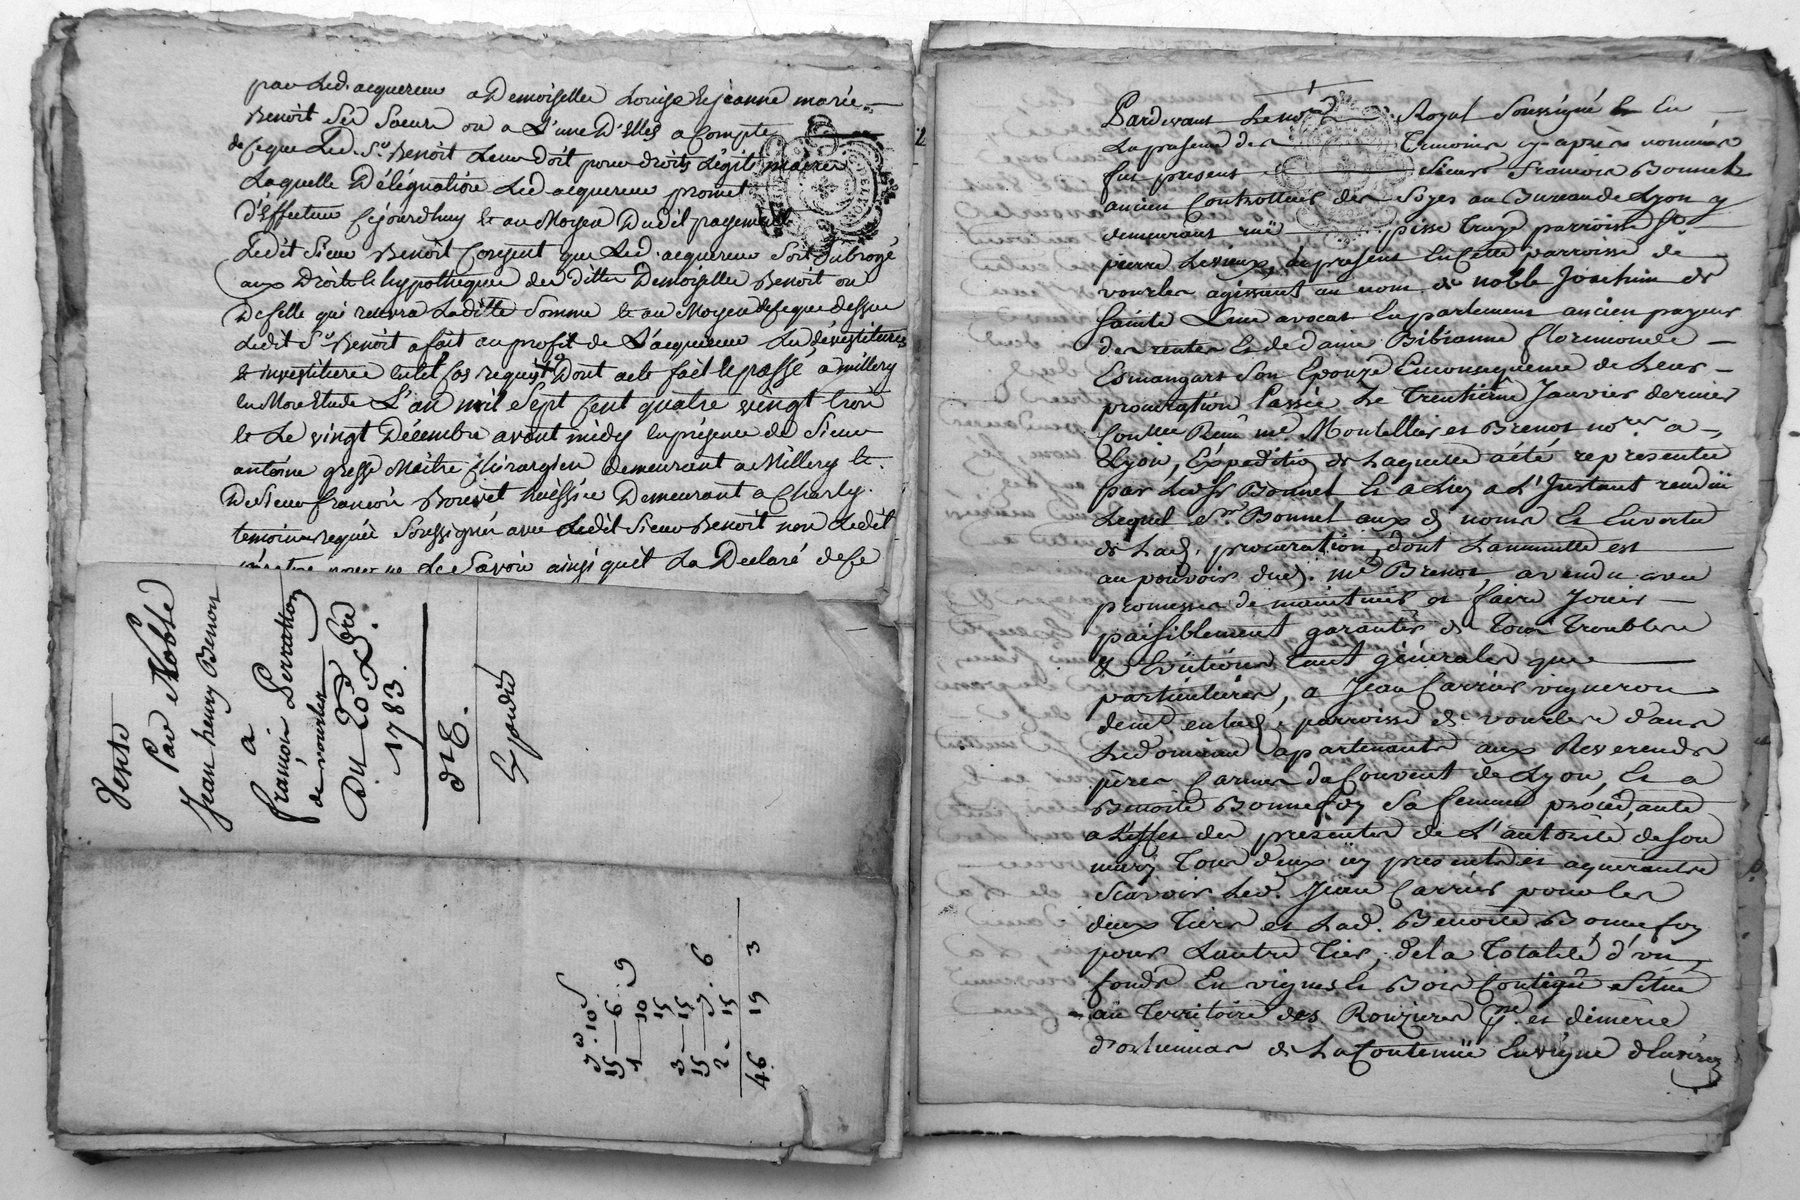 par led. acquereur a Demoiselles Louise et jeanne marie
Benoit ses Soeurs ou a L'une D'elles a Compte
de ce que Led. Sr. Benoit Leur doit pour droits Légitimaires
Laquelle Délégation Led acquereur promet
D'Effectuer cejourdhuy et au Moyen Dudit payement
Ledit Sieur Benoit Consent que Led. acquereur Soit Subrogé
aux Droits et hypotheques des dittes Demoiselles Benoit ou
De celle qui recevra Laditte Somme et au Moyen de ce que dessus
Ledit Sr Benoit a fait au profit de L'acquereur Les dévestitures
et investitures en tel Cas requis Dont acte fait et passé a millery
en Notre Etude L'an mil Sept Cent quatre vingt trois
et Le vingt Décembre avant midy en présence de Sieur
antoine Maitre Chirurgien demeurant a Millery et
De Sieur françois Bouvet huissier Demeurant a Charly
temoins requis Soussignés avec Ledit Sieur Benoit non Ledit
pour ne Le Savoir ainsi qu'il La Declaré de ce
Vente
Par Noble
Jean henry Benoit
a
françois Perration
de vourles
Du 20 Xbre
1783.
3
46 19 3
1
Pardevant Le no.re Royal Soussigné et En
La presence des Temoins cy-après nommés
fut present Sieur francois Bonnet
ancien Controlleur des Soyes au Bureau de Lyon y
demeurant rüe pisse Truye parroisse St
pierre Levieux, de present En Cette parroisse de
vourles agissant au nom de noble Joachim de
Sainte Lucie avocat En parlement ancien payeur
des rentes Et de dame Bibianne florimonde
Esmangart Son Epouze En consequence de Leur
procuration Passée Le Trentieme Janvier dernier
me. Montellier et Brenot no.res a
Lyon, Expedition de Laquelle a été representée
par Led. Sr Bonnet Et a Luy a L'Instant rendüe
Lequel Sr. Bonnet aux d. noms Et En vertu
de Lad. procuration, dont La minutte est
au pouvoir dud. me Brenot, a vendu avec
promesse de maintenir et faire Jouir
paisiblement garantir de Tous Troubles
& Evictions Tant générales que
particulieres, a Jean Carrier vigneron
demt en Lad. parroisse de vourles dans
Le domaine apartenants aux Reverends
pères Carmes du Couvent de Lyon, Et a
Benoite Bonnefoy Sa femme procédante
a L'effet des presentes de L'autorité de Son
mary Tous deux icy presents et aquerants
Scavoir Led. Jean Carrier pour les
deux Tiers et Lad. Benoite Bonnefoy
pour L'autre Tier, de la Totalité d'un
fonds En vignes et Bois Contigu Situé
au Territoire des Rouzieres
de La Contenüe En vigne d'Environ